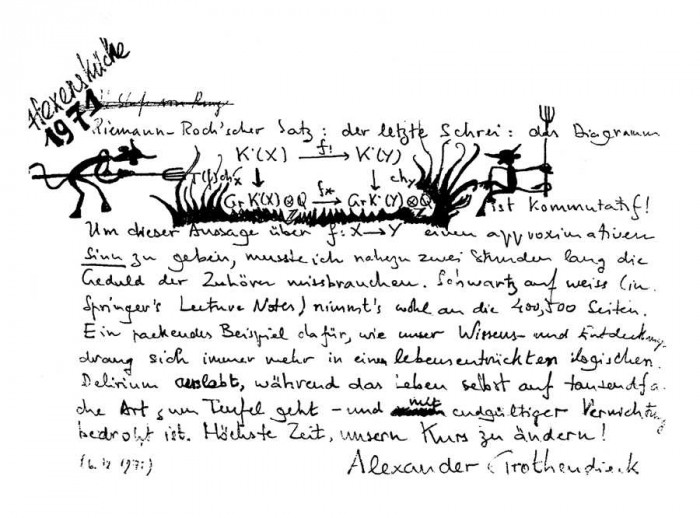 Hexenküche
1971
Riemann-Roch'scher Satz: der letzte Schrei: das Diagramm
K˙(X) f! K˙(Y)
T(f)chX chY
Gr K˙(X)⊗Q f* Gr K˙(Y)⊗Q
Z Z
ist kommutatif!
Um dieser Aussage über f: X → Y einen approximativen
Sinn zu geben, musste ich nahezu zwei Stunden lang die
Geduld der Zuhörer missbrauchen. Schwartz auf weiss (in
Springer's Lecture Notes) nimmt's wohl an die 400, 500 Seiten.
Ein packendes Beispiel dafür, wie unser Wissens- und Entdeckungs
drang sich immer mehr in einem lebensentrückten logischen
Delirium auslebt, während das Leben selbst auf tausendfa-
che Art zum Teufel geht - und mit endgültiger Vernichtung
bedroht ist. Höchste Zeit, unsern Kurs zu ändern!
Alexander Grothendieck